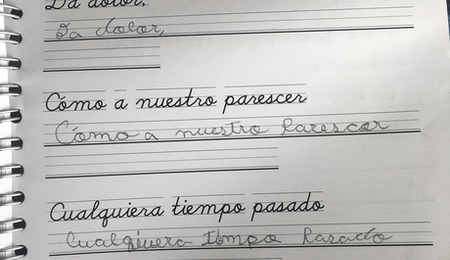 Da dolor,
Da dolor,
Cómo a nuestro parescer
Cómo a nuestro parescer
Cualquiera tiempo pasado
Cualquiera tiempo pasado